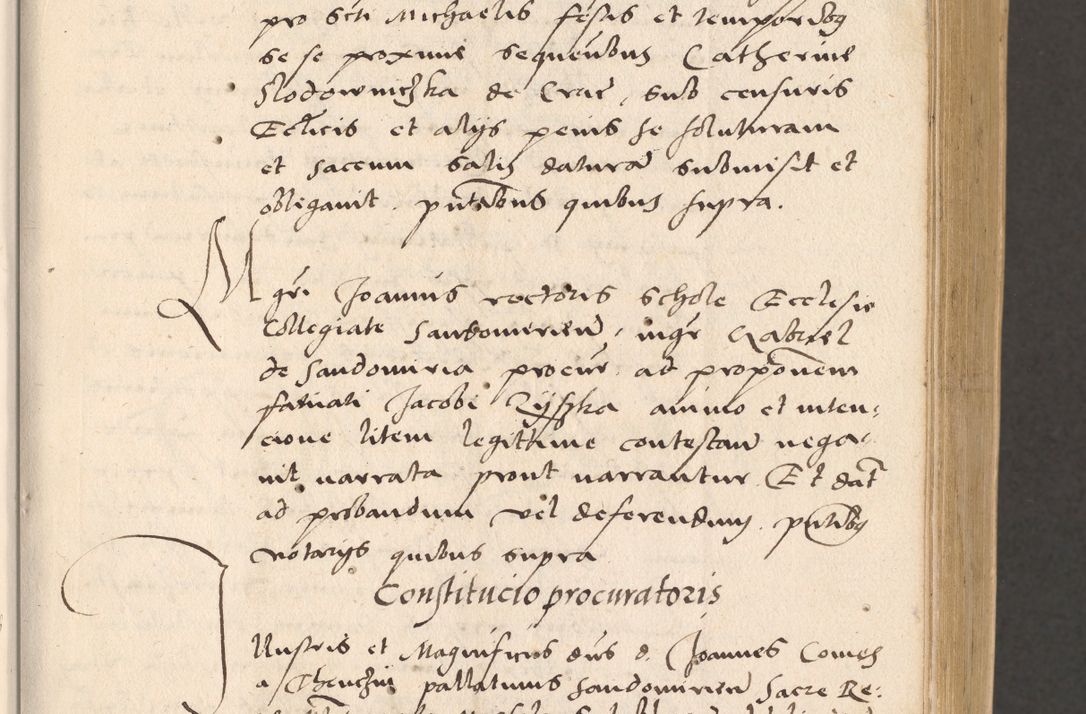 pro Scti Michaelis festis et temporibq
se se proxime sequentibus Catherine
Slodowniczka de Crac, sub censuris
Ecclicis et alijs penis se soluturam
et saccum salis daturā submisit et
obligavit. pñtibus quibus supra.
Mgri Joannis rectoris schole Ecclesie
Collegiate Sandomirien, mgr Gabriel
de Sandomiria procur ad proponem
famati Jacobi animo et inten:
cione litem legittime contestan nega
vit narrata prout narrantur. Et dat
ad probandum vel deferendum. pñtibq
notarijs quibus supra
Constitucio procuratoris
Illustris et Magnificus dns d. Joannes Comes
a Thenczin pallatinus Sandomirien Sacre Re: